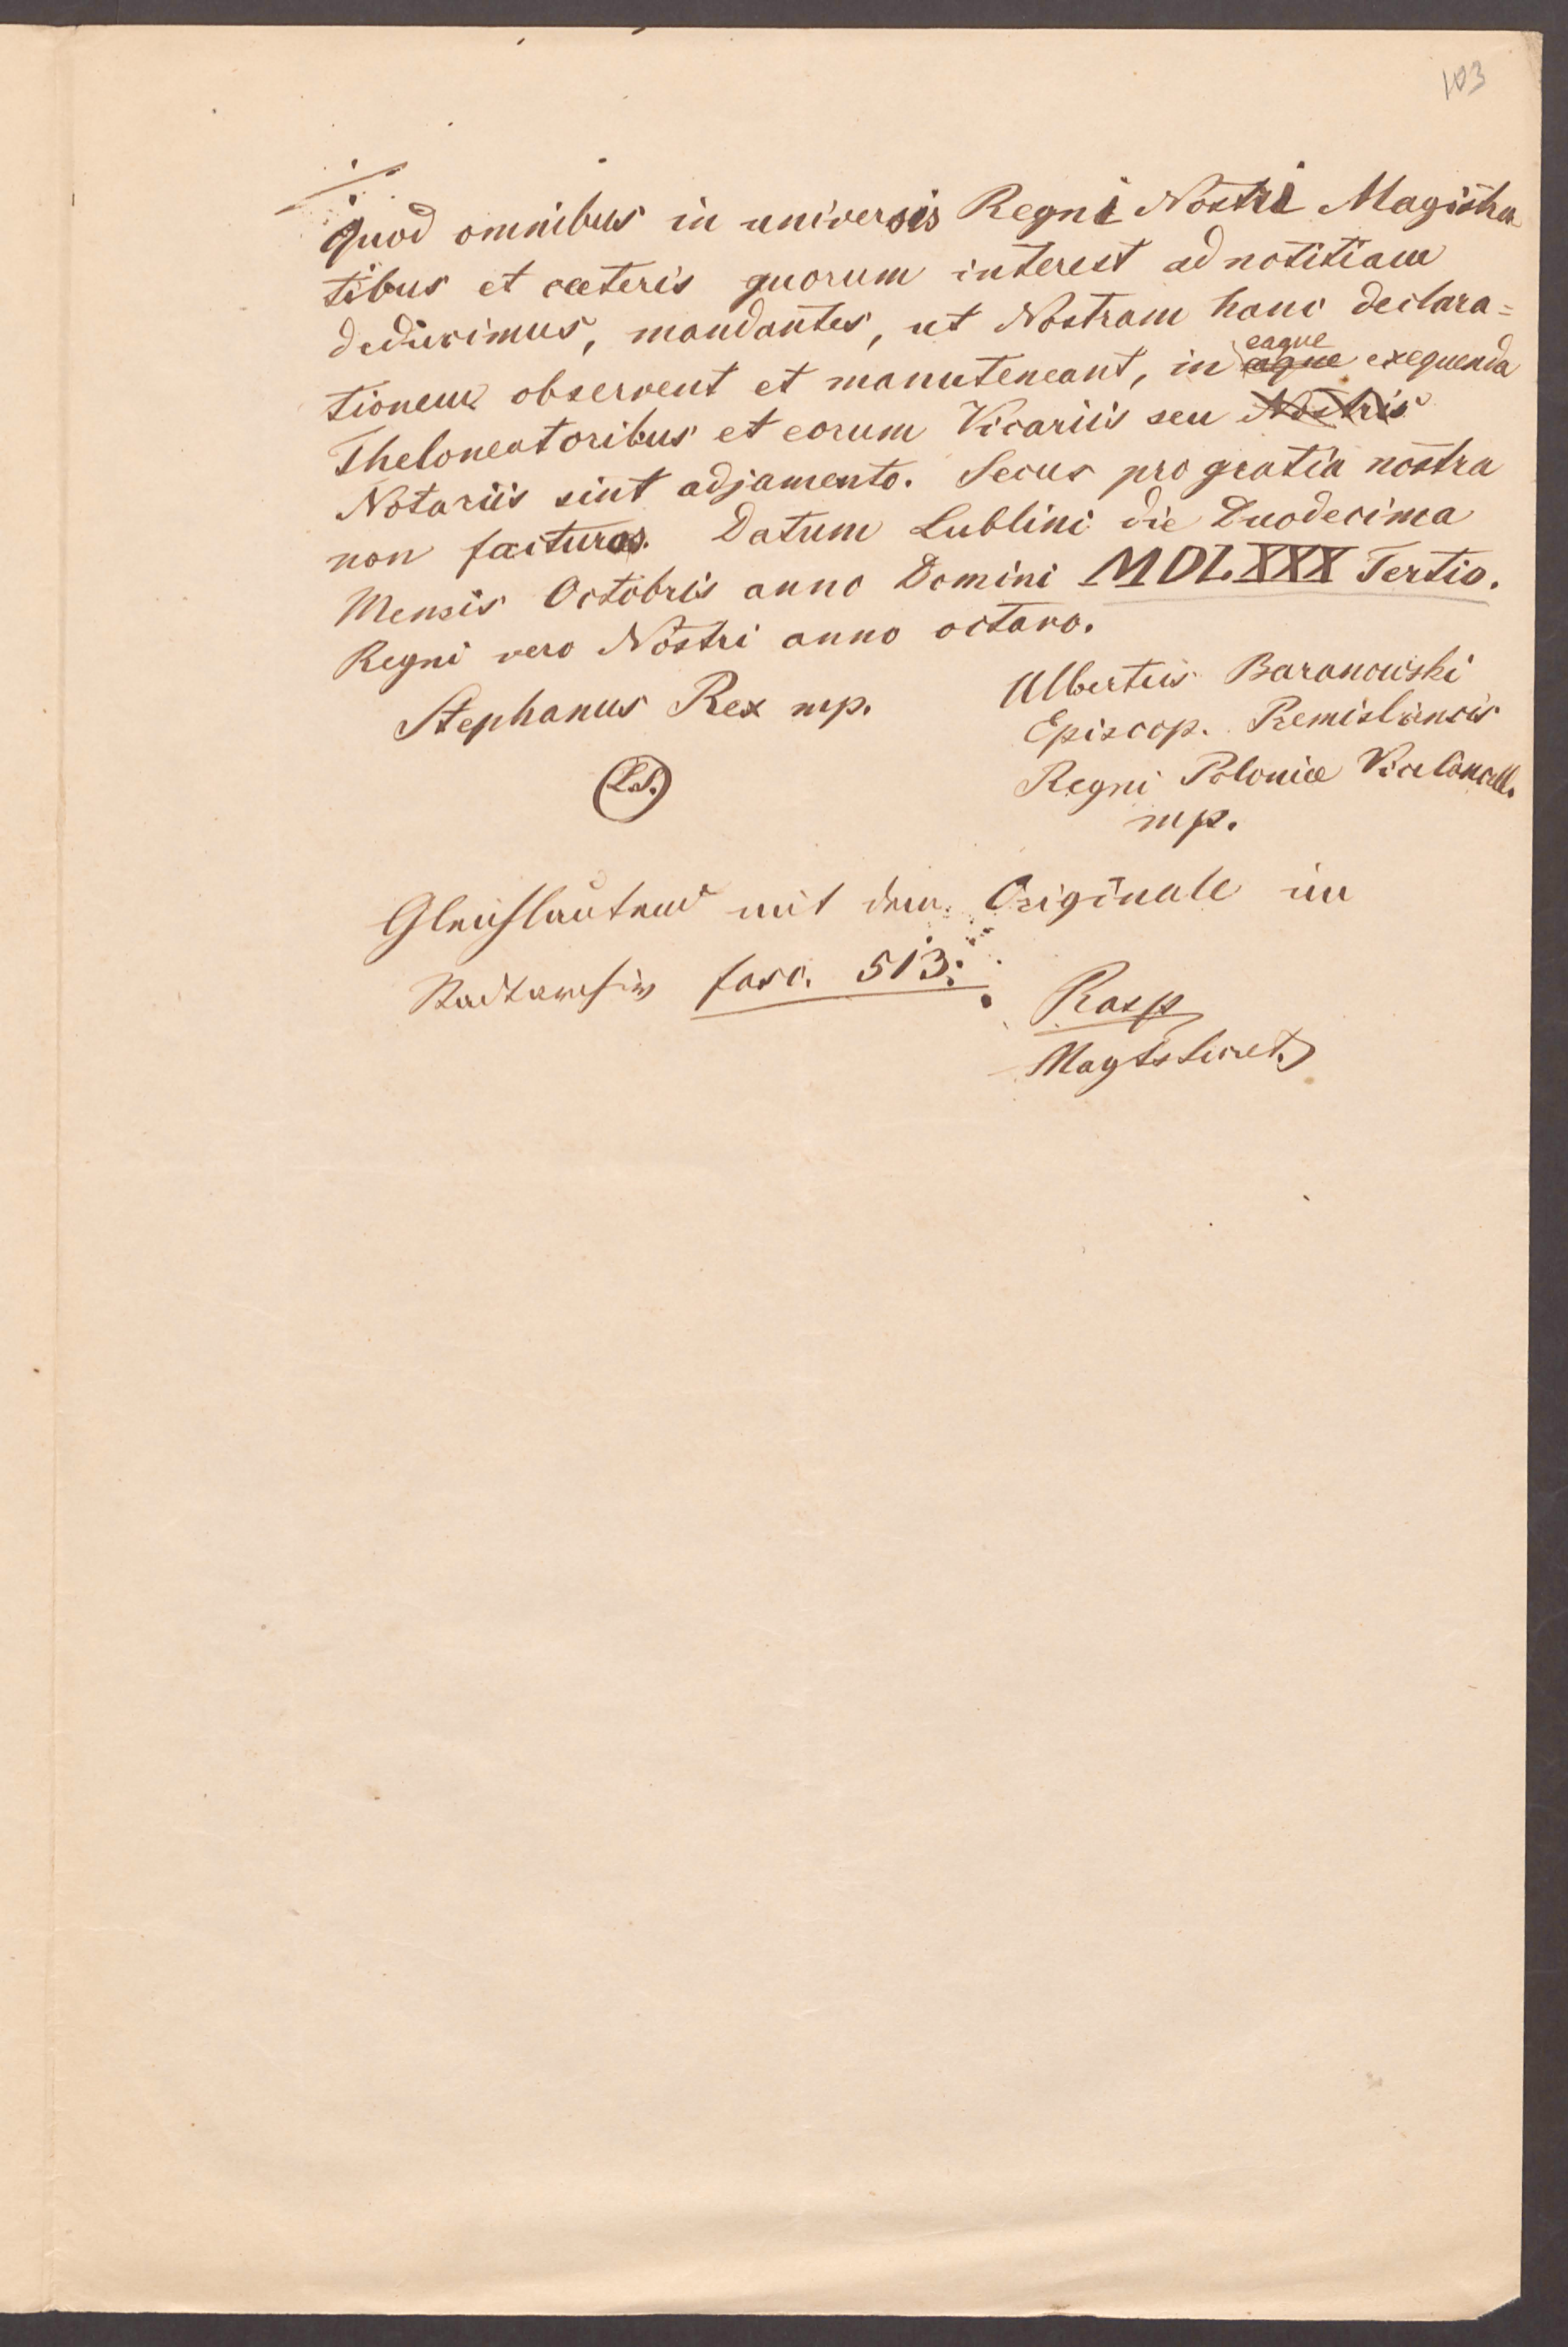 103
quod omnibus in universis Regni Nostri Magistra
tibus et cæteris quorum interest ad notitiam
deducimus, mandantes, ut Nostram hanc declara=
tionem observent et manuteneant, in eaque exequenda
Theloneatoribus et eorum Vicariis seu Nostris
Notariis sint adjamento. Secus pro gratia nostra
non facturos. Datum Lublini die Duodecima
Mensis Octobris anno Domini MDLXXX Tertio.
Regni vero Nostri anno octavo.
Stephanus Rex mp.
Albertus Baranowski
Episcop. Premisliensis
Regni Poloniæ Vicecancell.
mp.
L.S.
Gleichlautend mit dem Originale im
Stadtarchiv fasc. 513.
Rasp
MagtsSecret.